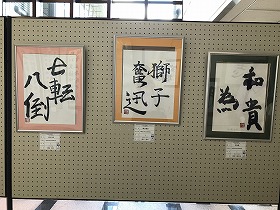 七転
八倒
獅子
奮迅
和為
貴